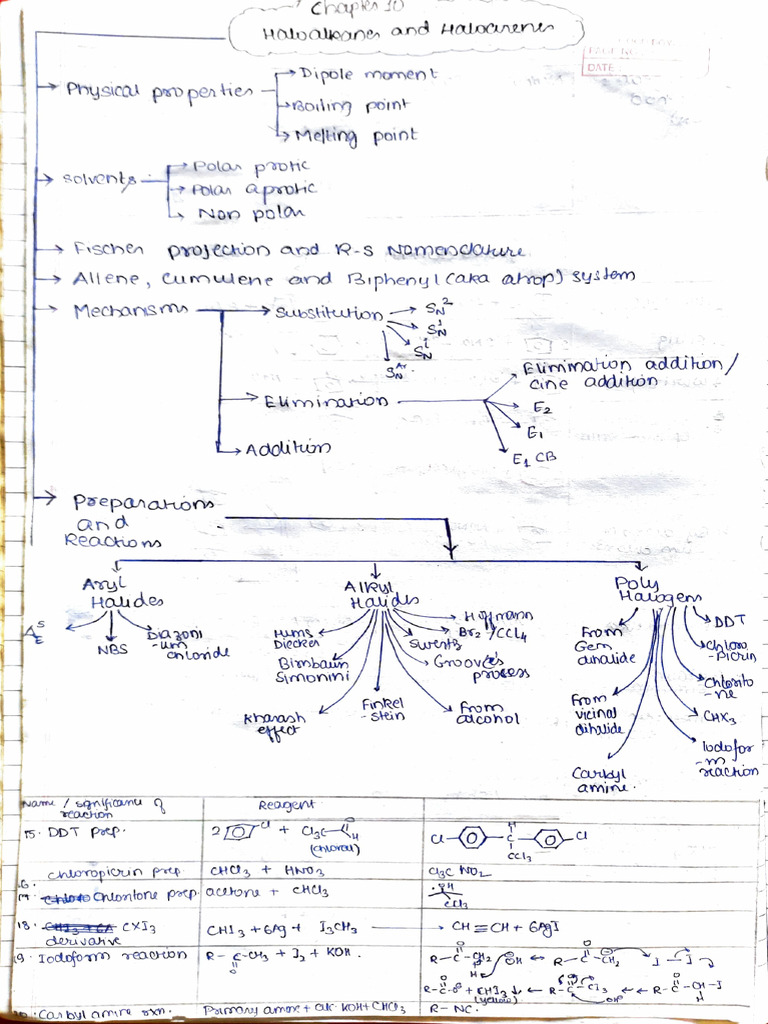 Chapter 10
Haloalkanes and Haloarenes
PAGE NO.
DATE:
Physical properties
Dipole moment
Boiling point
Melting point
Solvents
Polar protic
Polar aprotic
Non polar
Fischer projection and R-S Nomenclature
Allene, Cumulene and Biphenyl (aka atrop) system
Mechanisms
Substitution
SN2
SN1
SNi
SNAr
Elimination
Elimination addition/
cine addition
E2
E1
E1 CB
Addition
Preparations
and
Reactions
Aryl
Halides
ASE
NBS
Diazoni
-um
chloride
Alkyl
Halides
Hums
Diecker
Birnbaum
Simonini
Kharash
effect
Finkel
-stein
From
alcohol
Groove's
process
Swentz
Br2/CCl4
Hoffmann
Poly
Halogens
From
Gem
dihalide
From
vicinal
dihalide
Carbyl
amine.
DDT
Chloro
-picrin
Chlorito
-ne
CHX3
Iodofor
-m
reaction
Name / significance of
reaction
Reagent
15. DDT prep.
2 Cl + Cl3C H
(chloral)
Cl H C Cl
CCl3
16. chloropicrin prep
CHCl3 + HNO3
Cl3C NO2
17. Chlortone prep
acetone + CHCl3
OH
CCl3
18. CXI3
derivative
CHI3 + 6Ag + I3CH
CH≡CH + 6AgI
19. Iodoform reaction
R-C-CH3 + I2 + KOH.
O
R-C-CH2 OH R-C-CH2 I-I
H
R-C-O + CHI3↓ R-C-CI3 R-C-CH-I
(yellow) OH H
Carbyl amine rxn.
Primary amine + alc KOH + CHCl3
R-NC.